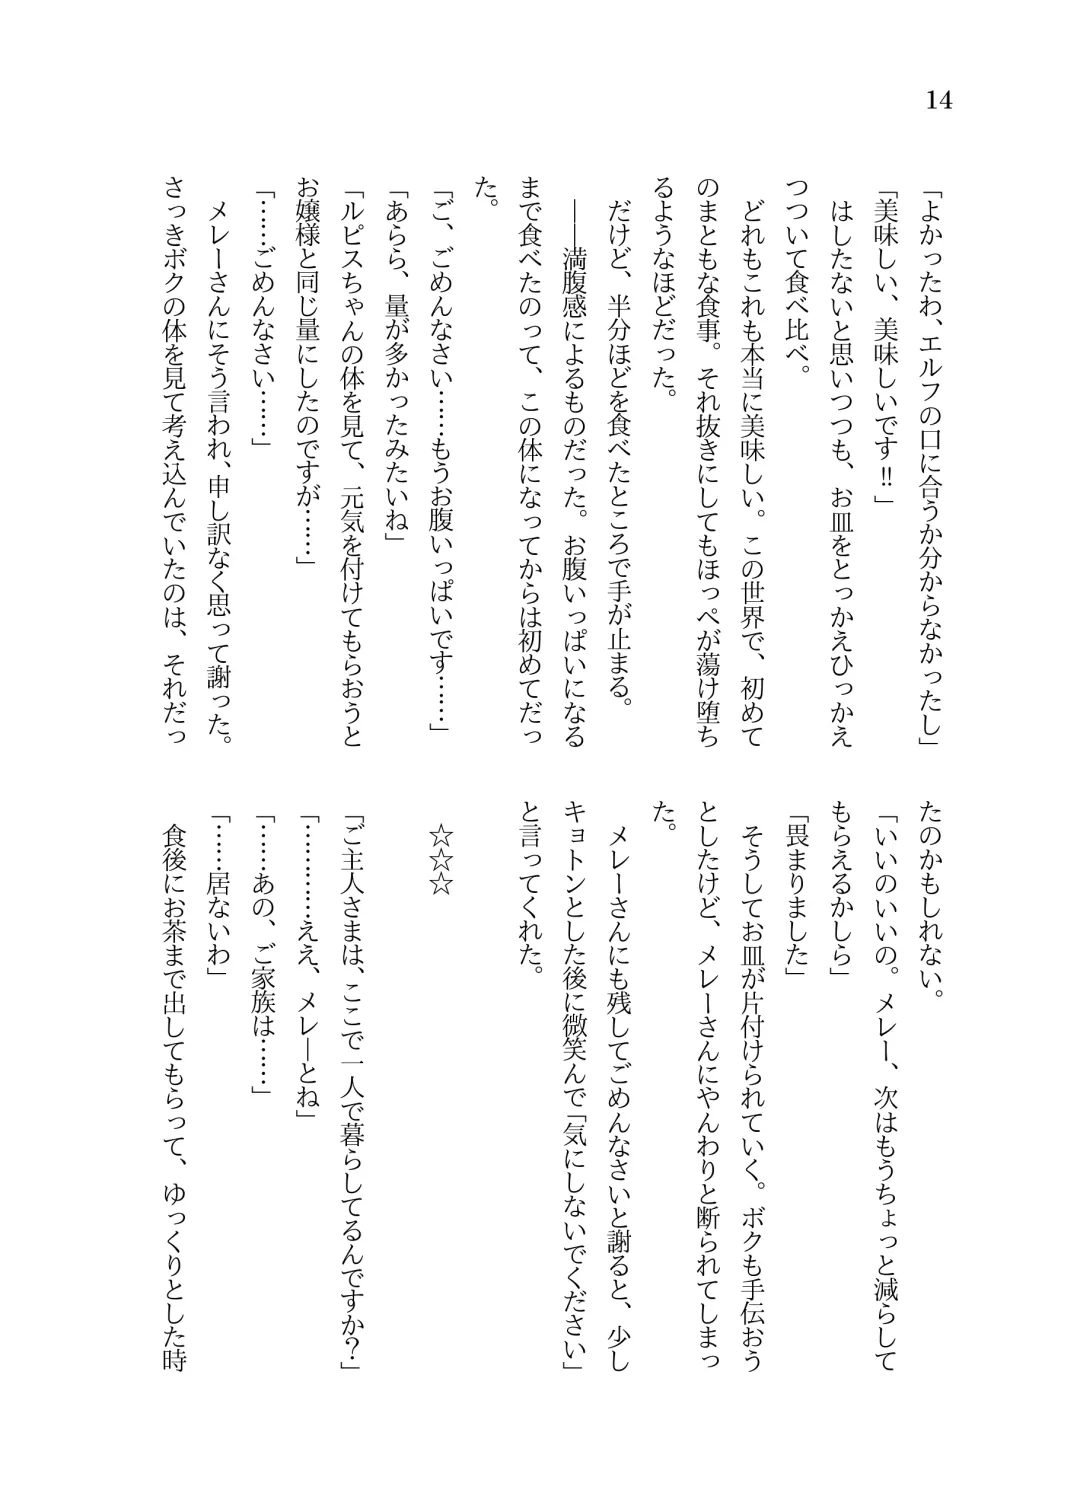 14
「よかったわ、エルフの口に合うか分からなかったし」
「美味しい、美味しいです!!」
　はしたないと思いつつも、お皿をとっかえひっかえ
つついて食べ比べ。
　どれもこれも本当に美味しい。この世界で、初めて
のまともな食事。それ抜きにしてもほっぺが蕩け堕ち
るようなほどだった。
　だけど、半分ほどを食べたところで手が止まる。
　――満腹感によるものだった。お腹いっぱいになる
まで食べたのって、この体になってからは初めてだっ
た。
「ご、ごめんなさい……もうお腹いっぱいです……」
「あらら、量が多かったみたいね」
「ルピスちゃんの体を見て、元気を付けてもらおうと
お嬢様と同じ量にしたのですが……」
「……ごめんなさい……」
　メレーさんにそう言われ、申し訳なく思って謝った。
さっきボクの体を見て考え込んでいたのは、それだっ
たのかもしれない。
「いいのいいの。メレー、次はもうちょっと減らして
もらえるかしら」
「畏まりました」
　そうしてお皿が片付けられていく。ボクも手伝おう
としたけど、メレーさんにやんわりと断られてしまっ
た。
　メレーさんにも残してごめんなさいと謝ると、少し
キョトンとした後に微笑んで「気にしないでください」
と言ってくれた。
☆☆☆
「ご主人さまは、ここで一人で暮らしてるんですか？」
「…………ええ、メレーとね」
「……あの、ご家族は……」
「……居ないわ」
　食後にお茶まで出してもらって、ゆっくりとした時